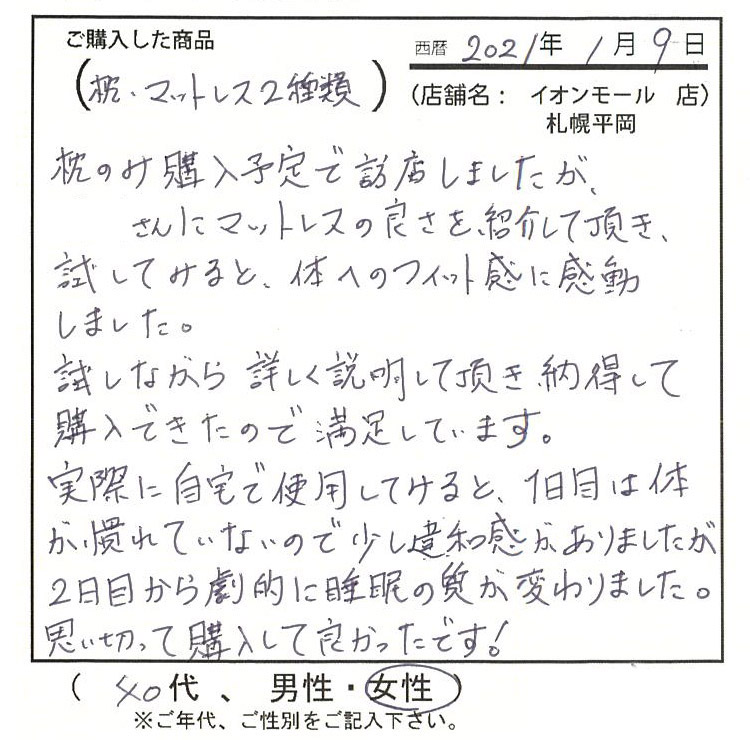 ご購入した商品
西暦 2021年 1月9日
(枕・マットレス2種類)
(店舗名: イオンモール 店)
札幌平岡
枕のみ購入予定で訪店しましたが、
さんにマットレスの良さを紹介して頂き、
試してみると、体へのフィット感に感動
しました。
試しながら詳しく説明して頂き納得して
購入できたので満足しています。
実際に自宅で使用してみると、1日目は体
が慣れていないので少し違和感がありましたが
2日目から劇的に睡眠の質が変わりました。
思い切って購入して良かったです!
( 40代 、 男性・女性 )
※ご年代、ご性別をご記入下さい。